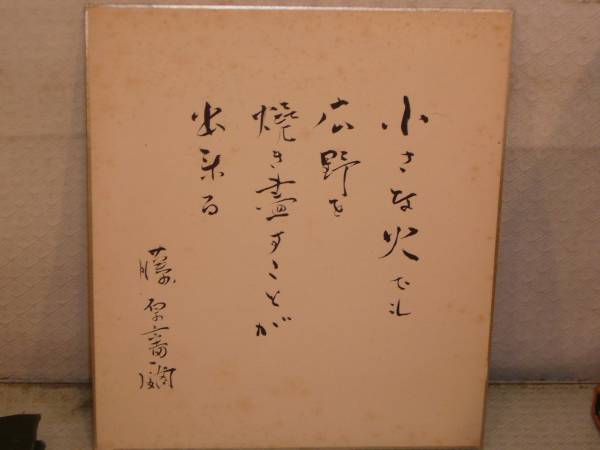 小さな火でも
広野を
焼き盡すことが
出来る
藤原審爾